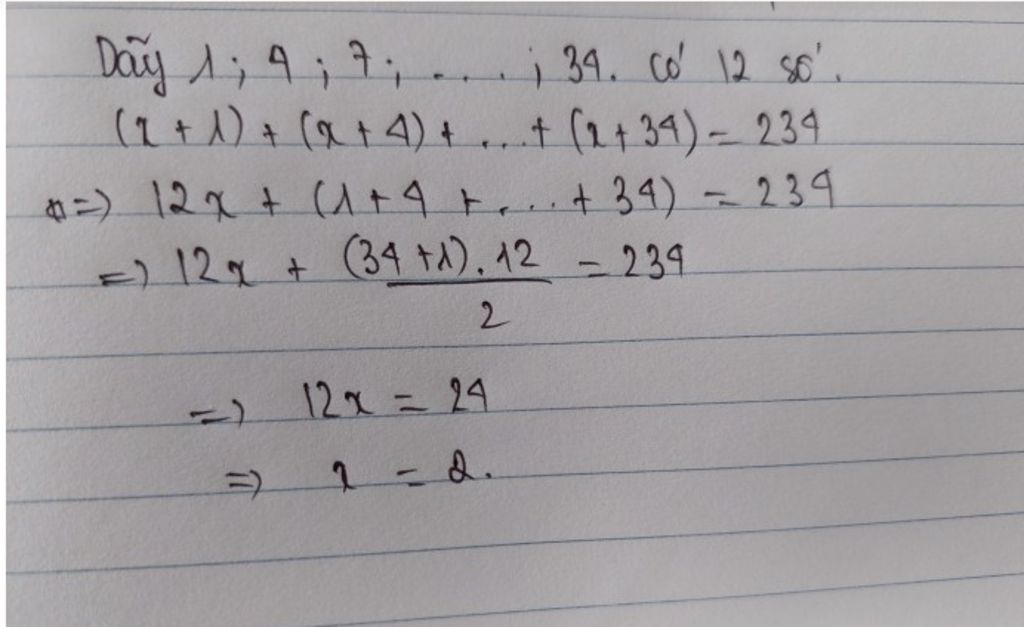 Dãy 1 ; 4 ; 7 ; .... ; 34. có 12 số.
(x + 1) + (x + 4) + ... + (x + 34) = 234
=> 12x + (1 + 4 + .... + 34) = 234
=> 12x + (34 + 1) . 12 / 2 = 234
=> 12x = 24
=> x = 2.